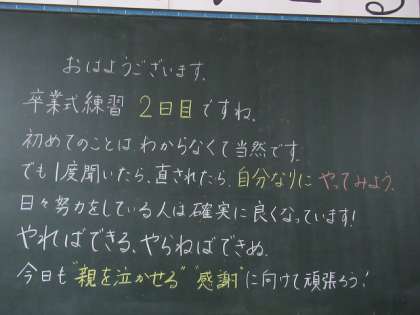 おはようございます。
卒業式練習 2日目ですね。
初めてのことは わからなくて当然です。
でも1度聞いたら、直されたら、自分なりに やってみよう。
日々努力をしている人は確実に良くなっています!
やればできる、やらねばできぬ。
今日も"親を泣かせる" 感謝"に向けて頑張ろう!